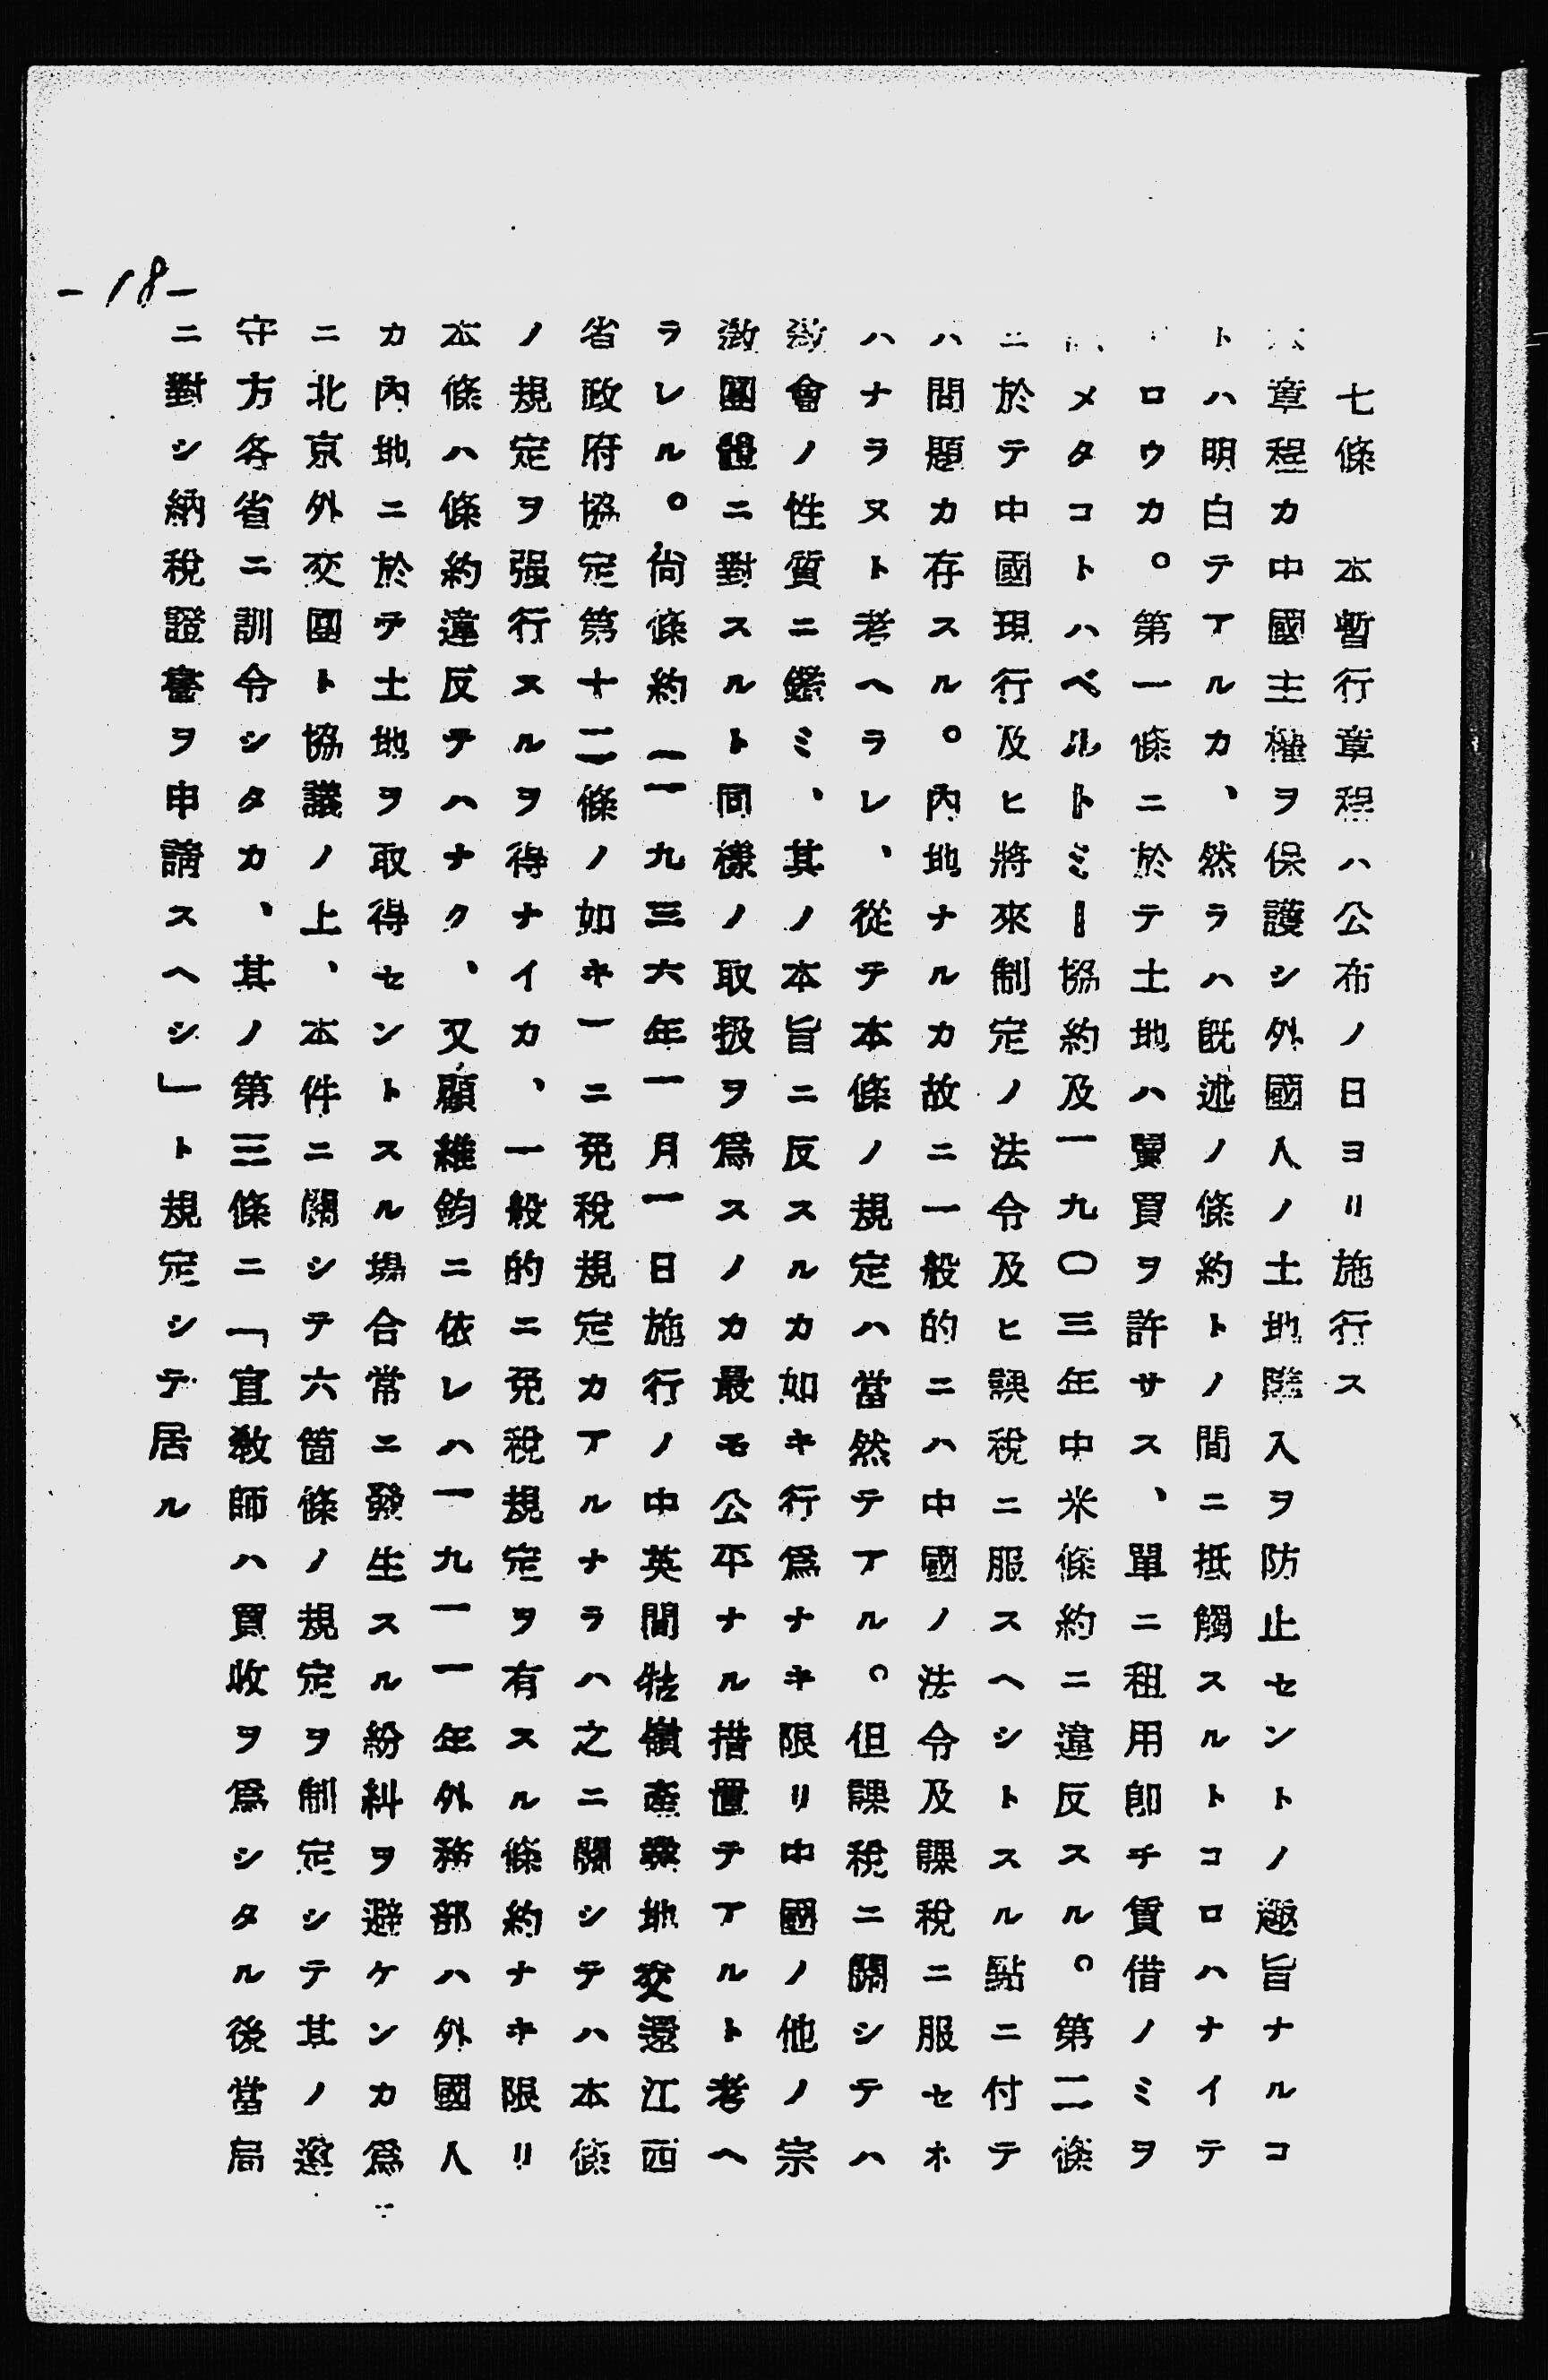 七條　本暫行章程ハ公布ノ日ヨリ施行ス
章程カ中國主權ヲ保護シ外國人ノ土地購入ヲ防止セントノ趣旨ナルコ
トハ明白テアルカ、然ラハ既述ノ條約トノ間ニ抵觸スルトコロハナイテ
ロウカ。第一條ニ於テ土地ハ買ヲ許サス、單ニ租用卽チ賃借ノミヲ
メタコトハベルトミー協約及一九〇三年中米條約ニ違反スル。第二條
ニ於テ中國現行及ヒ將來制定ノ法令及ヒ課稅ニ服スヘシトスル點ニ付テ
ハ問題カ存スル。內地ナルカ故ニ一般的ニハ中國ノ法令及課稅ニ服セネ
ハナラヌト考ヘラレ、從テ本條ノ規定ハ當然テアル。但課稅ニ關シテハ
敎會ノ性質ニ鑑ミ、其ノ本旨ニ反スルカ如キ行爲ナキ限リ中國ノ他ノ宗
敎團體ニ對スルト同樣ノ取扱ヲ爲スノカ最モ公平ナル措置テアルト考ヘ
ラレル。尙條約（一九三六年一月一日施行ノ中英間牯嶺產業地交還江西
省政府協定第十二條ノ如キ一ニ免稅規定カアルナラハ之ニ關シテハ本條
ノ規定ヲ强行スルヲ得ナイカ、一般的ニ免稅規定ヲ有スル條約ナキ限リ
本條ハ條約違反テハナク、又顧維鈞ニ依レハ一九一一年外務部ハ外國人
カ內地ニ於テ土地ヲ取得セントスル場合常ニ發生スル紛糾ヲ避ケンカ爲
ニ北京外交團ト協議ノ上、本件ニ關シテ六箇條ノ規定ヲ制定シテ其ノ遵
守方各省ニ訓令シタカ、其ノ第三條ニ「宣敎師ハ買收ヲ爲シタル後當局
ニ對シ納稅證書ヲ申請スヘシ」ト規定シテ居ル
-18-